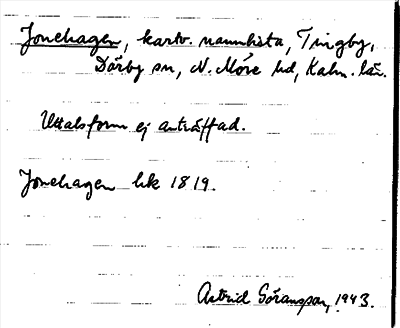 Jonehagen, kartv. namnlista, Tingby,
Dörby sn, N. Möre hd, Kalm. län.
Uttalsform ej anträffad.
Jonehagen hk 1819.
Astrid Göransson, 1943.